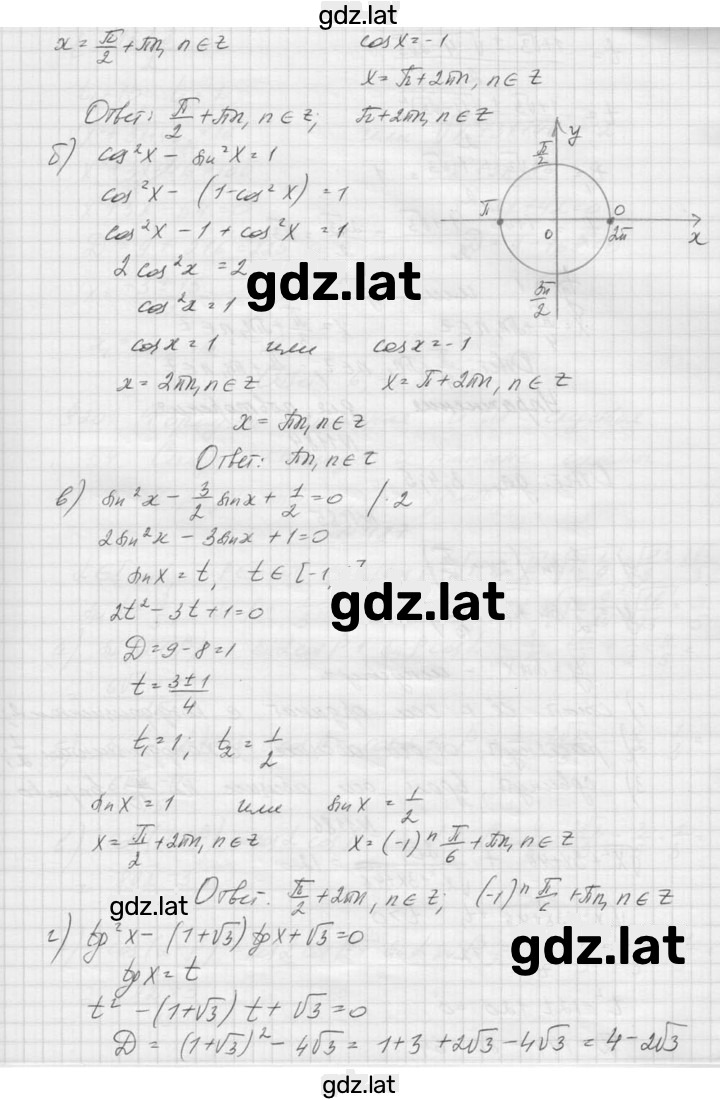 gdz.lat
x = π/2 + πn, n ∈ z   cosx = -1
x = π + 2πn, n ∈ z
Ответ: π/2 + πn, n ∈ z; π + 2πn, n ∈ z
б) cos²x - sin²x = 1
y
π/2
cos²x - (1 - cos²x) = 1
π 0
cos²x - 1 + cos²x = 1
0 2π x
2cos²x = 2
gdz.lat
3π/2
cos²x = 1
cosx = 1 или cosx = -1
x = 2πn, n ∈ z   x = π + 2πn, n ∈ z
x = πn, n ∈ z
Ответ: πn, n ∈ z
в) sin²x - 3/2 sinx + 1/2 = 0 /·2
2sin²x - 3sinx + 1 = 0
sinx = t, t ∈ [-1,
gdz.lat
2t² - 3t + 1 = 0
D = 9 - 8 = 1
t = (3 ± 1)/4
t₁ = 1; t₂ = 1/2
sinx = 1 или sinx = 1/2
x = π/2 + 2πn, n ∈ z   x = (-1)ⁿ π/6 + πn, n ∈ z
Ответ. π/2 + 2πn, n ∈ z; (-1)ⁿ π/6 + πn, n ∈ z
gdz.lat
г) tg²x - (1+√3) tgx + √3 = 0
gdz.lat
tgx = t
t² - (1+√3) t + √3 = 0
D = (1+√3)² - 4√3 = 1 + 3 + 2√3 - 4√3 = 4 - 2√3
gdz.lat